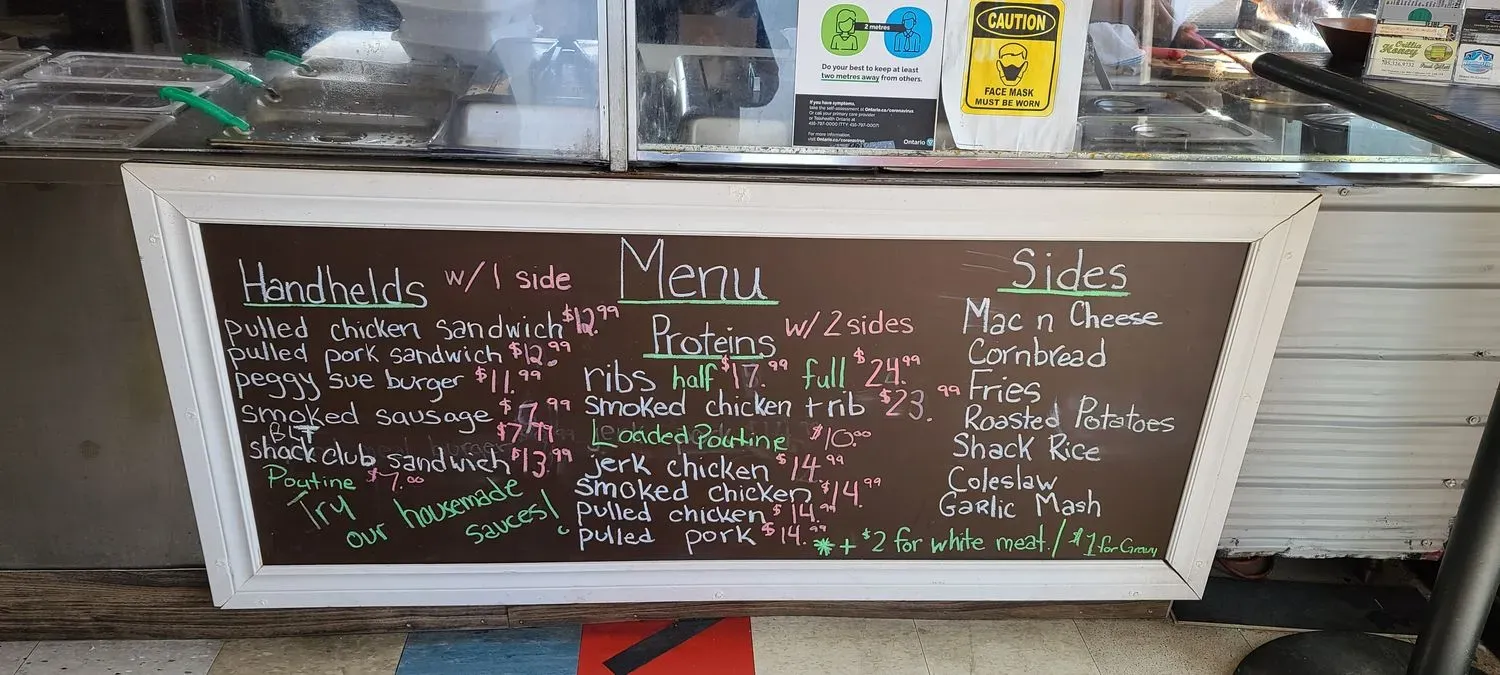 2 metres
Do your best to keep at least
two metres away from others.
If you have symptoms,
take the self-assessment at Ontario.ca/coronavirus
Or call your primary care provider
or Telehealth Ontario at
For more information,
visit Ontario.ca/coronavirus
Ontario
CAUTION
FACE MASK
MUST BE WORN
Menu
Handhelds w/ 1 side
pulled chicken sandwich $12.99
pulled pork sandwich $12.99
peggy sue burger $11.99
smoked sausage $7.99
BLT $7.99
shack club sandwich $13.99
Poutine $7.00
Try
our housemade
sauces!
Proteins w/ 2 sides
ribs half $17.99 full $24.99
smoked chicken + rib $23.99
Loaded Poutine $10.00
jerk chicken $14.99
smoked chicken $14.99
pulled chicken $14.99
pulled pork $14.99
Sides
Mac n Cheese
Cornbread
Fries
Roasted Potatoes
Shack Rice
Coleslaw
Garlic Mash
* + $2 for white meat. / $1 for Gravy